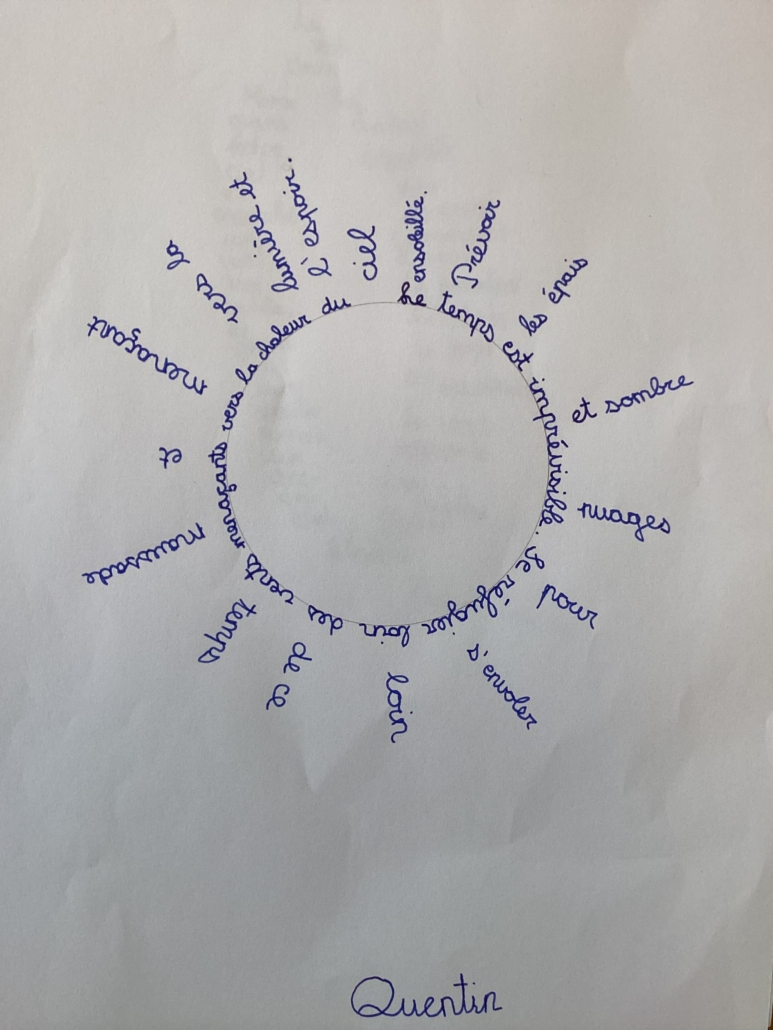 Le temps est imprévisible. Se réfugier loin des vents menaçants vers la chaleur du
ciel
ensoleillé.
Prévoir
les épais
et sombre
nuages
pour
s'envoler
loin
de ce
temps
maussade
et
menaçant
vers la
lumière et
l'espoir.
Quentin